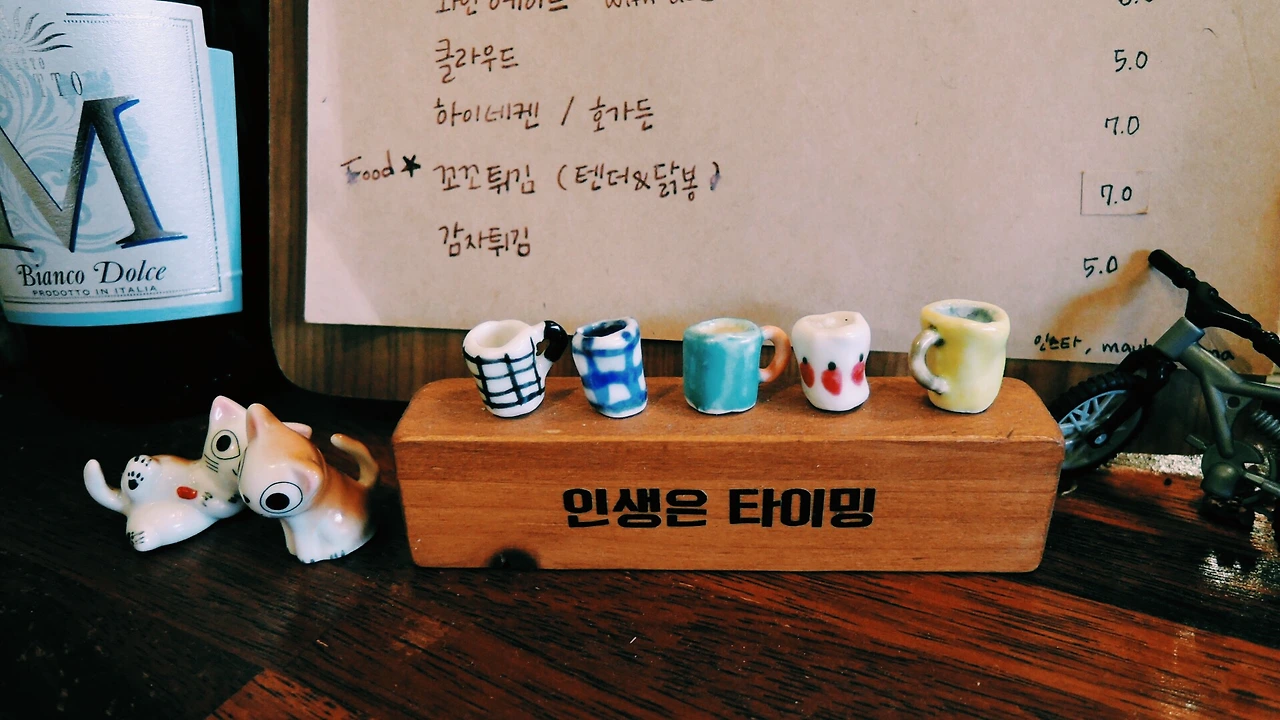 와인에이드
클라우드 5.0
하이네켄 / 호가든 7.0
Food★ 꼬꼬튀김 (텐더&닭봉) 7.0
감자튀김 5.0
인스타,
M
Bianco Dolce
PRODOTTO IN ITALIA
인생은 타이밍